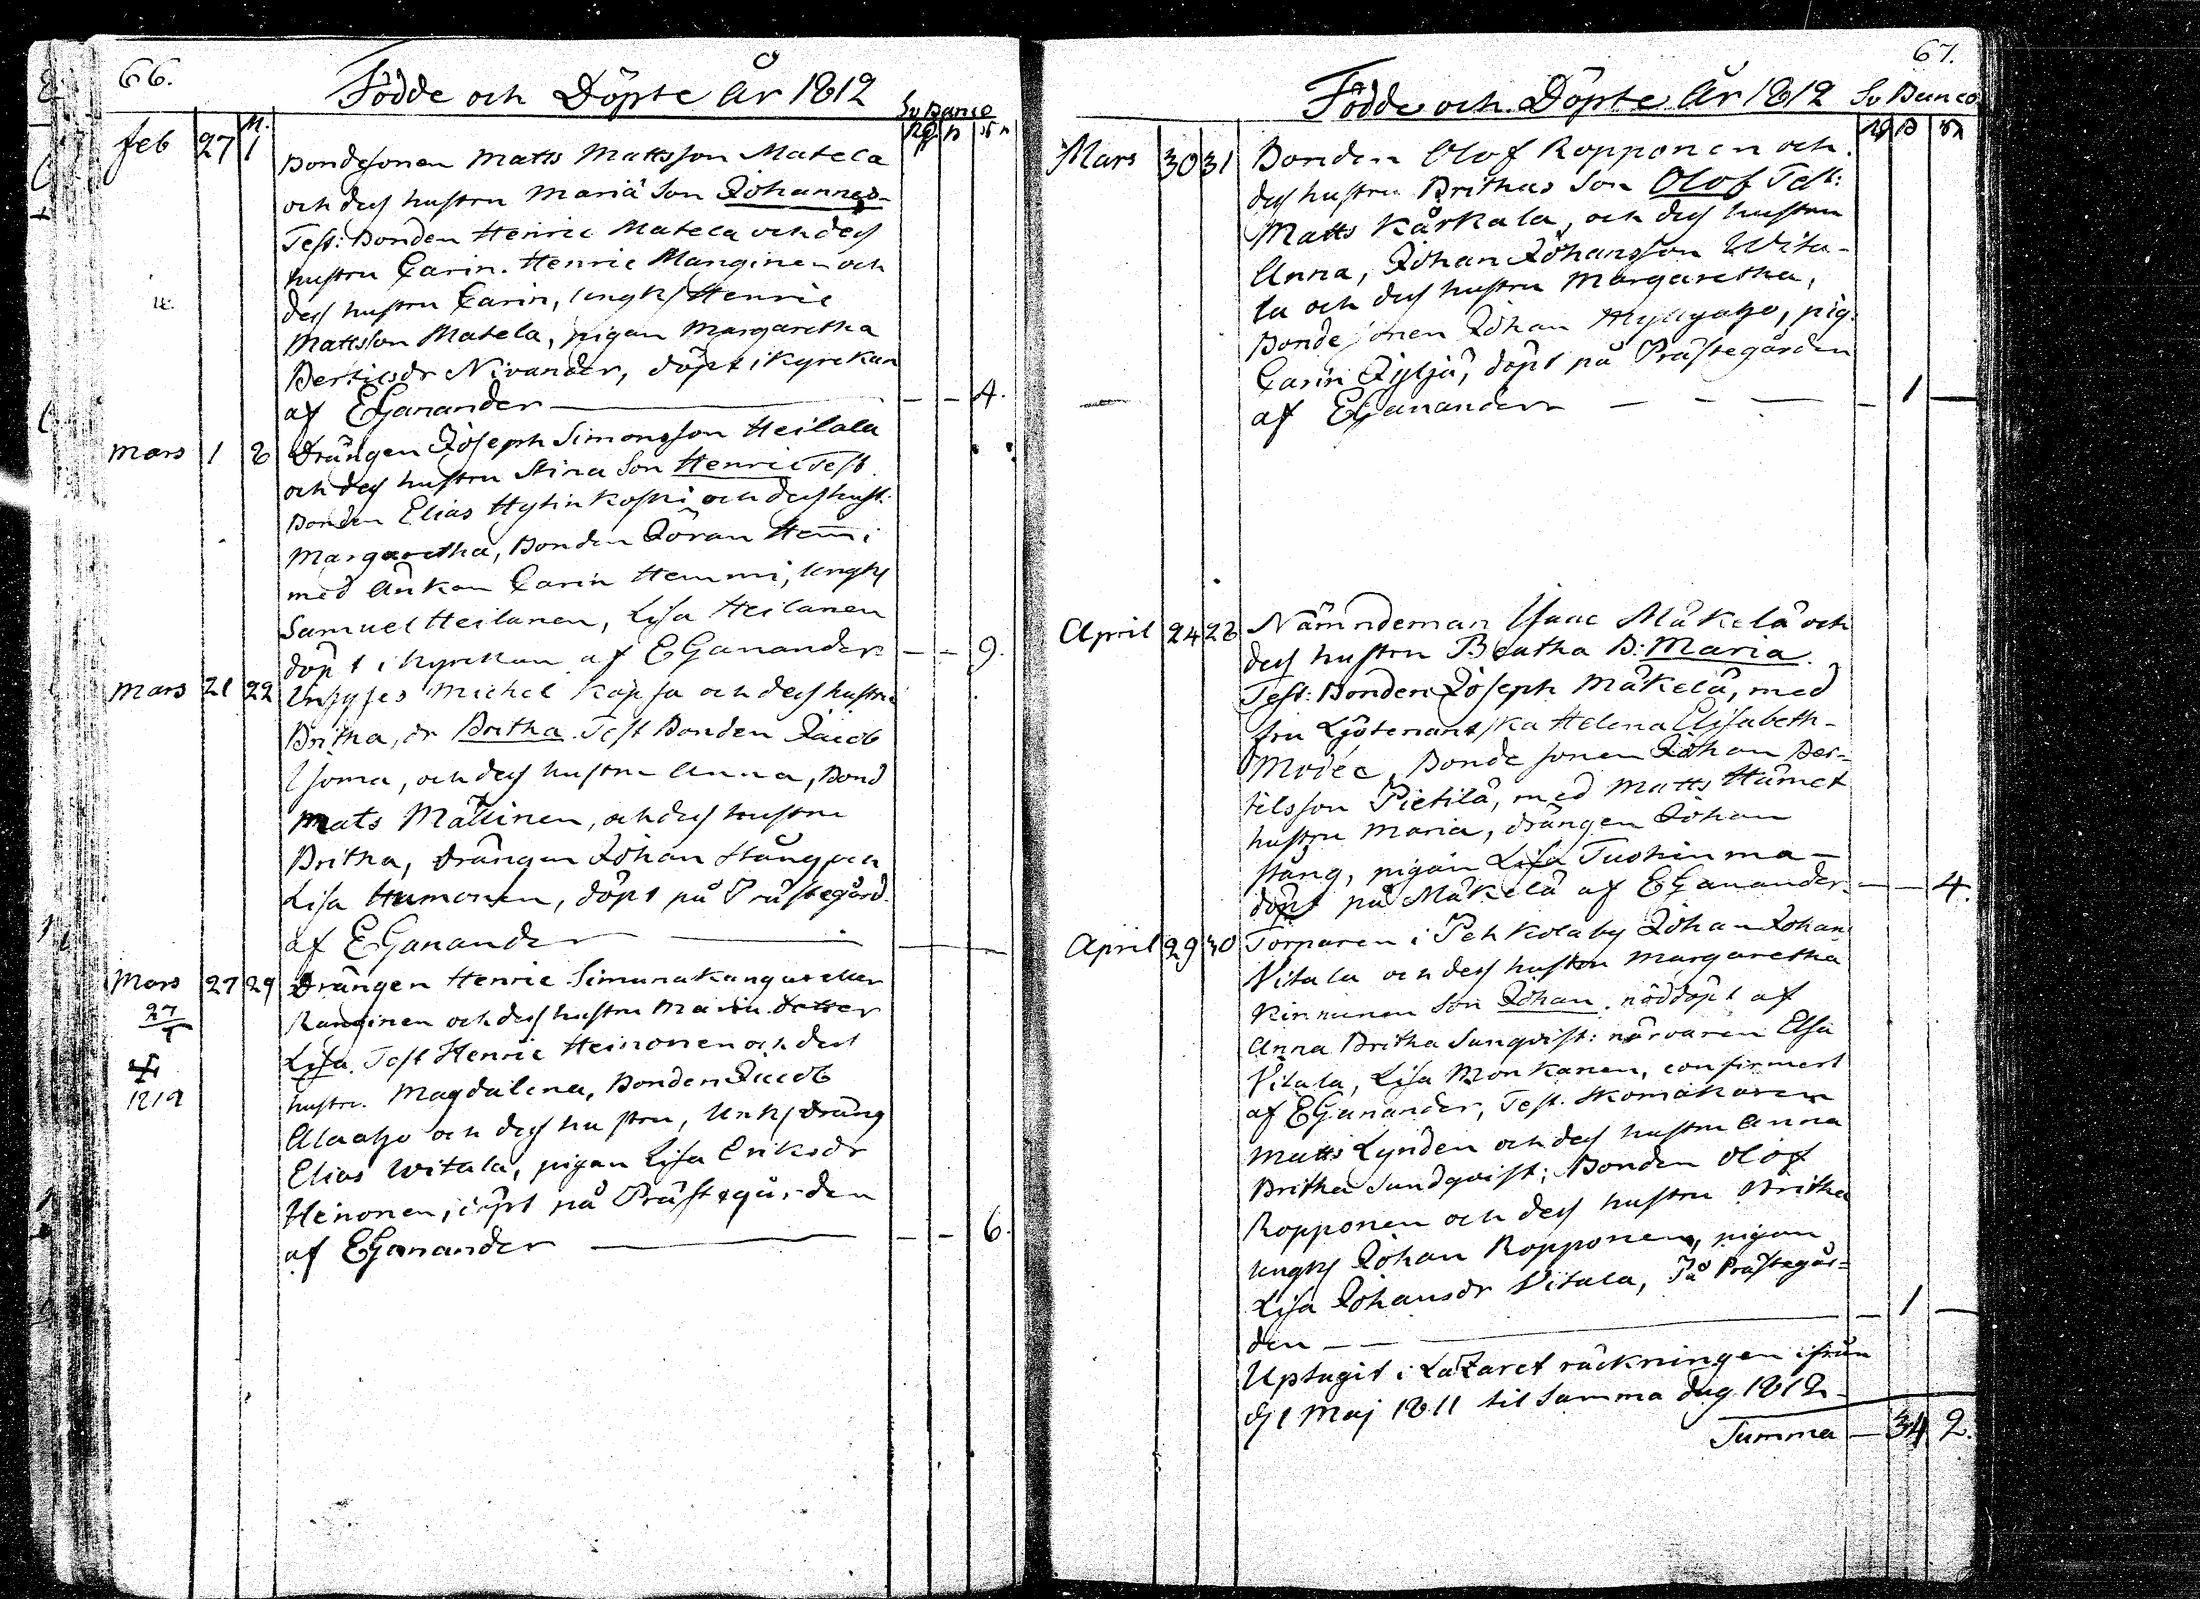 66.
Födde och Döpte År 1812
Sv Banco
Rd ß rst
feb 27 M. 1 Bondesonen Matts Mattsson Matela
och dess hustru Maria Son Johannes
Test: Bonden Henric Matela och dess
hustru Carin. Henric Manginen och
dess hustru Carin, ungk Henric
Mattsson Matela, pigan Margaretha
Bertilsdr Nivander, döpt i Kyrckan
af EGanander — — — 4.
Mars 1 8 Drängen Joseph Simonsson Heilala
och dess hustru Stina Son Henric Test
Bonden Elias Hytinkoski och dess hust:
Margaretha, Bonden Jöran Hemi
med Änkan Carin Hemmi, ungk
Samuel Heilanen, Lisa Heilanen
döpt i Kyrckan af EGanander — — 9.
Mars 21 22 Michel Kapja och dess hustru
Britha, dr Britha. Test Bonden Jacob
Isoma, och dess hustru Anna, Bond
Mats Mällinen, och dess hustru
Britha, Drängen Johan Stång och
Lisa Humonen, döpt på Prästegård.
af EGanander —
Mars 27 29 Drängen Henric Simunakangas eller
Ranginen och dess hustru Maria dotter
27
1819
Lisa. Test Henric Heinonen och dess
hustru. Magdalena, Bonden Jacob
Alaaho och dess hustru, Unk Dräng
Elias Witala, pigan Lisa Eriksdr
Heinonen, döpt på Prästegården
af EGanander — — — 6.
67.
Födde och Döpte År 1812 Sv Banco
Rd ß rst
Mars 30 31 Bonden Olof Ropponen och
dess hustru Brithas Son Olof Test:
Matts Kärkala, och dess hustru
Anna, Johan Johansson Wita-
la och dess hustru Margaretha,
Bondesonen Johan pig.
Carin Jyljä, döpt på Prästegården
af EGanander — — — — 1 —
April 24 26 Nämndeman Isaac Mäkelä och
dess hustru Beatha D: Maria.
Test: Bonden Joseph Mäkelä, med
fru Löjtenantska Helena Elisabeth
Modée, Bonde sonen Johan Ber-
tilsson Pietilä, med Matts Hämet
hustru Maria, drängen Johan
Stång, pigan Lisa Tuohinma-
döpt på Mäkelä af EGanander — — 4.
April 29 30 Torparen i Pehkolaby Johan Johans
Vitala och dess hustru Margaretha
Kinnunen Son Johan. nöddöpt af
Anna Britha Sunqvist: närvaren Elsa
Vitala, Lisa Monkanen, confirmert
af EGanander, Test. Skomakaren
Matts Lynden och dess hustru Anna
Britha Sundqvist; Bonden Olof
Ropponen och dess hustru Britha
ungk Johan Ropponen, pigan
Lisa Johansdr Vitala, På Prästegår-
den — — — — 1 —
Uptagit i Lazaret räckningen ifrån
d 1 Maj 1811 til samma dag 1812
Summa — 34 2.